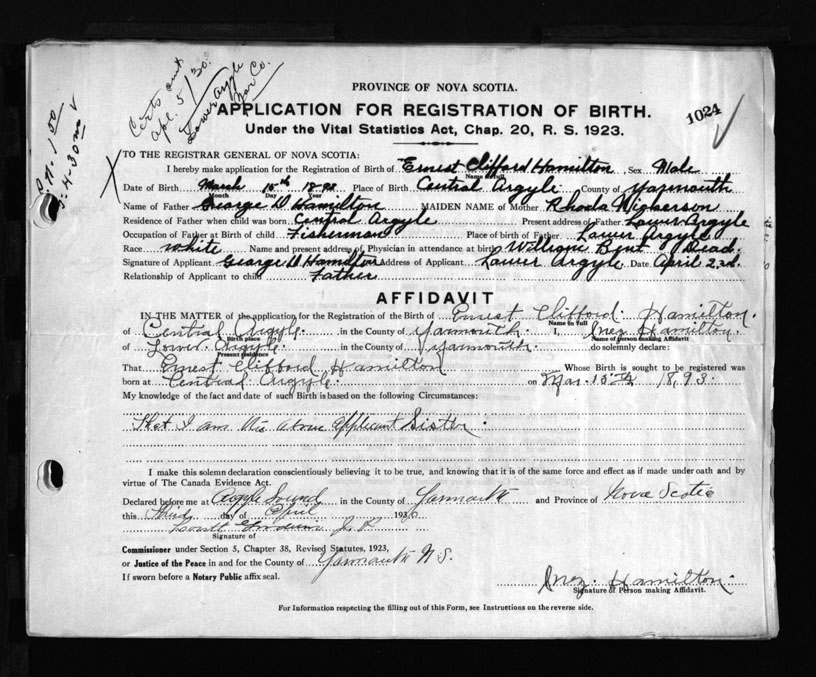 Certs sent
Apl. 5/30.
Lower Argyle
Yar Co.
PROVINCE OF NOVA SCOTIA.
APPLICATION FOR REGISTRATION OF BIRTH.
1024
Under the Vital Statistics Act, Chap. 20, R. S. 1923.
TO THE REGISTRAR GENERAL OF NOVA SCOTIA:
I hereby make application for the Registration of Birth of Ernest Clifford Hamilton, Sex Male
Name in full
Date of Birth March 15th 1893 Place of Birth Central Argyle County of Yarmouth
Month Day Year
Name of Father George D Hamilton MAIDEN NAME of Mother Rhoda Nickerson
Residence of Father when child was born Central Argyle Present address of Father Lower Argyle
Occupation of Father at Birth of child Fisherman Place of birth of Father Lower Argyle
Race White Name and present address of Physician in attendance at birth William Bent Dead.
Signature of Applicant George D Hamilton Address of Applicant Lower Argyle Date April 2nd.
Relationship of Applicant to child Father
AFFIDAVIT
IN THE MATTER of the application for the Registration of the Birth of Ernest Clifford Hamilton.
Name in full
of Central Argyle in the County of Yarmouth I, Inez Hamilton.
Birth place Name of person making Affidavit
of Lower Argyle in the County of Yarmouth do solemnly declare:
Present residence
That Ernest Clifford Hamilton Whose Birth is sought to be registered was
born at Central Argyle. on Mar. 15th 1893.
My knowledge of the fact and date of such Birth is based on the following Circumstances:
That I am the above applicant Sister.
I make this solemn declaration conscientiously believing it to be true, and knowing that it is of the same force and effect as if made under oath and by
virtue of The Canada Evidence Act.
Declared before me at Argyle Sound in the County of Yarmouth and Province of Nova Scotia
this third day of April 1930
J. P.
Signature of
Commissioner under Section 5, Chapter 38, Revised Statutes, 1923,
or Justice of the Peace in and for the County of Yarmouth N.S.
If sworn before a Notary Public affix seal.
Inez Hamilton.
Signature of Person making Affidavit.
For Information respecting the filling out of this Form, see Instructions on the reverse side.